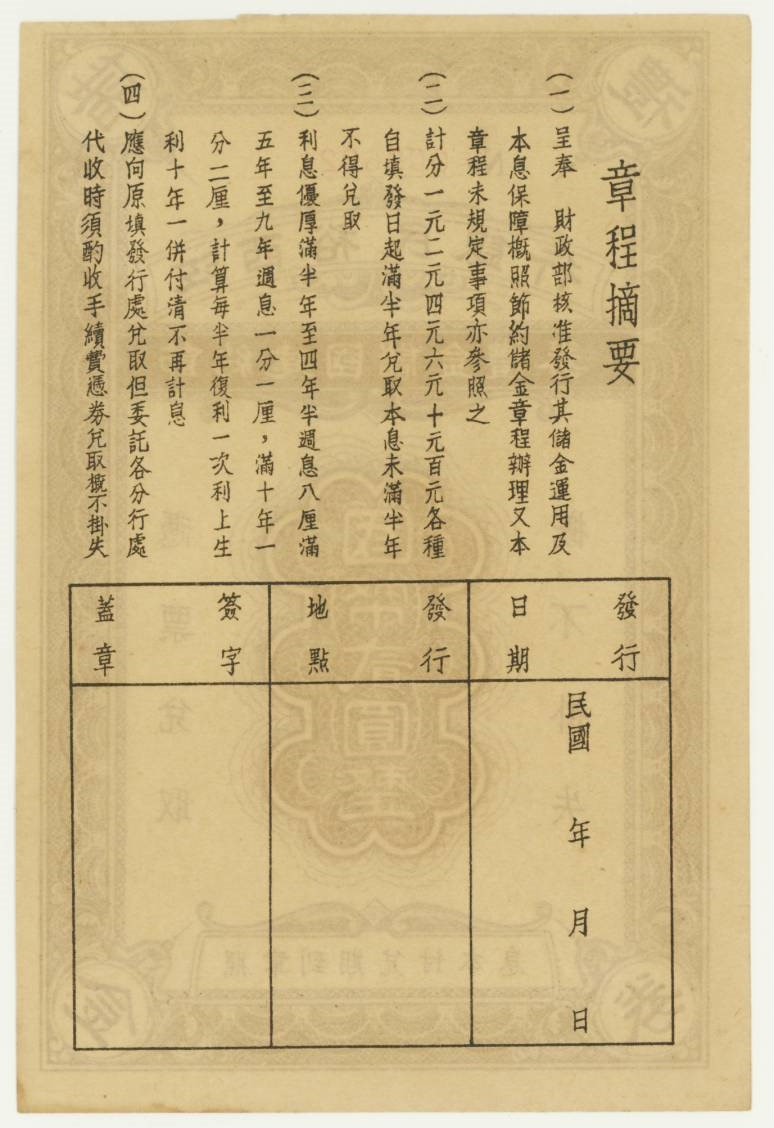 章程摘要
(一)呈奉　財政部核准發行其儲金運用及
本息保障概照節約儲金章程辦理又本
章程未規定事項亦參照之
(二)計分一元二元四元六元十元百元各種
自填發日起滿半年兌取本息未滿半年
不得兌取
(三)利息優厚滿半年至四年半週息八厘滿
五年至九年週息一分一厘，滿十年一
分二厘，計算每半年復利一次利上生
利十年一併付清不再計息
(四)應向原填發行處兌取但委託各分行處
代收時須酌收手續費憑券兌取概不掛失
發行日期
發行地點
簽字蓋章
民國　年　月　日